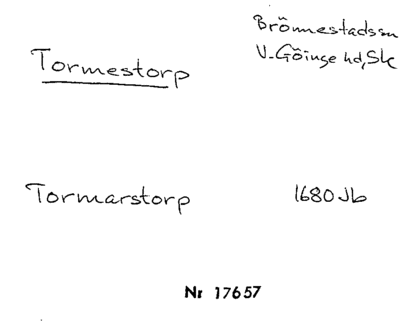 Brömestads sn
Tormestorp
V. Göinge hd, Sk
Tormarstorp
1680 Jb
Nr 17657